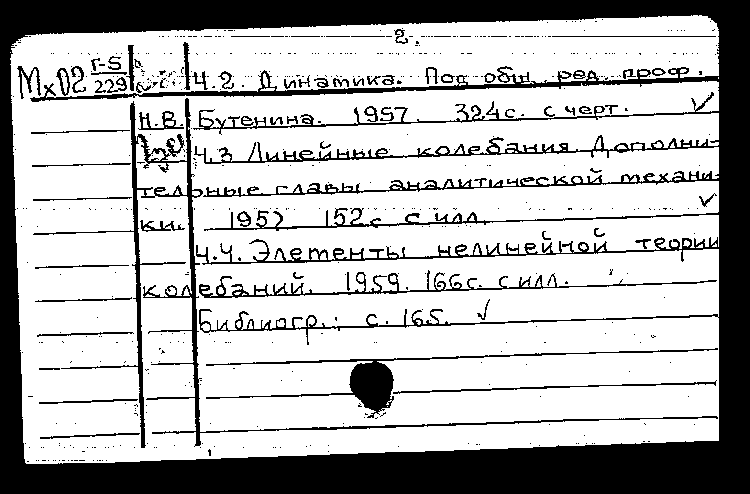 2.
Мх02 Г-5/229 Ч.2. Динамика. Под общ. ред. проф.
Н.В. Бутенина. 1957. 324с. с черт. ✓
Ч.3 Линейные колебания Дополни-
тельные главы аналитической механи-
ки. 1957 152с с илл. ✓
Ч.4. Элементы нелинейной теории
колебаний. 1959. 166с. с илл.
Библиогр.: с. 165. ✓